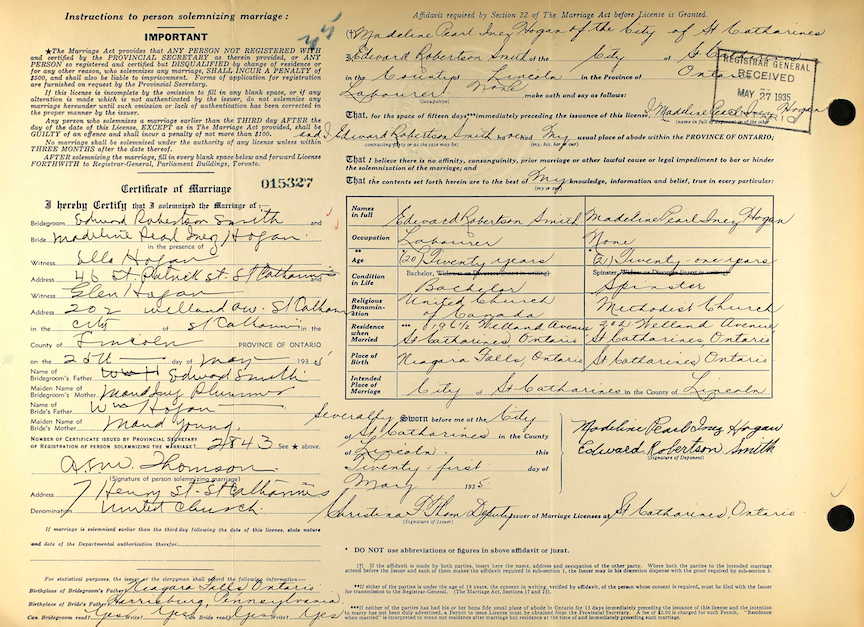 Instructions to person solemnizing marriage:
IMPORTANT
★The Marriage Act provides that ANY PERSON NOT REGISTERED
and certified by the PROVINCIAL SECRETARY as therein provided, or ANY
PERSON so registered and certified but DISQUALIFIED by change of residence or
for any other reason, who solemnizes any marriage, SHALL INCUR A PENALTY of
$500, and shall also be liable to imprisonment. Forms of application for registration
are furnished on request by the Provincial Secretary.
If this license is incomplete by the omission to fill in any blank space, or if any
alteration is made which is not authenticated by the issuer, do not solemnize any
marriage hereunder until such omission or lack of authentication has been corrected in
the proper manner by the issuer.
Any person who solemnizes a marriage earlier than the THIRD DAY AFTER the
day of the date of this License, EXCEPT as in The Marriage Act provided, shall be
GUILTY of an offence and shall incur a penalty of not more than $100.
No marriage shall be solemnized under the authority of any license unless within
THREE MONTHS after the date thereof.
AFTER solemnizing the marriage, fill in every blank space below and forward License
FORTHWITH to Registrar-General, Parliament Buildings, Toronto.
015327
Certificate of Marriage
I hereby Certify that I solemnized the Marriage of:
Bridegroom Edward Robertson Smith and
Bride Madeline Pearl Inez Hogan
in the presence of
Witness Ella Hogan
Address 46 St. Patrick St. St Catharines
Witness Glen Hogan
Address 202 Welland Ave. St Catharines
in the City of St Catharines
County of Lincoln PROVINCE OF ONTARIO
on the 25th day of May 1935
Name of Bridegroom's Father Edward Smith
Maiden Name of Bridegroom's Mother
Name of Bride's Father Wm Hogan
Maiden Name of Bride's Mother Maud Young
NUMBER OF CERTIFICATE ISSUED BY PROVINCIAL SECRETARY
OF REGISTRATION OF PERSON SOLEMNIZING THE MARRIAGE 2843 See ★ above.
Thomson
(Signature of person solemnizing marriage)
Address 7 Henry St. St Catharines
Denomination United Church
If marriage is solemnized earlier than the third day following the date of this license, state nature
and date of the Departmental authorization therefor:
For statistical purposes, the issuer or the clergyman shall record the following information—
Birthplace of Bridegroom's Father Niagara Falls Ontario
Birthplace of Bride's Father Harrisburg, Pennsylvania
Can Bridegroom read? Yes Write? Yes Can Bride read? Yes Write? Yes
Affidavit required by Section 22 of The Marriage Act before License is Granted.
(†) Madeline Pearl Inez Hogan of the City of St Catharines
Edward Robertson Smith of the City of St Catharines
in the County of Lincoln in the Province of Ontario
Labourer None make oath and say as follows:
(Occupation)
REGISTRAR GENERAL
RECEIVED
MAY 27 1935
ONTARIO
That, for the space of fifteen days*** immediately preceding the issuance of this license, I Madeline Pearl Inez Hogan
and I Edward Robertson Smith had my usual place of abode within the PROVINCE OF ONTARIO;
That I believe there is no affinity, consanguinity, prior marriage or other lawful cause or legal impediment to bar or hinder
the solemnization of the marriage; and
That the contents set forth herein are to the best of my knowledge, information and belief, true in every particular:
Names in full Edward Robertson Smith Madeline Pearl Inez Hogan
Occupation Labourer None
** Age (20) Twenty years (21) Twenty-one years
Condition in Life Bachelor, Widower or Divorced (insert in writing) Bachelor Spinster, Widow or Divorced (insert in writing) Spinster
Religious Denomination United Church of Canada Methodist Church
Residence when Married *** 196 1/2 Welland Avenue St Catharines, Ontario 202 Welland Avenue St Catharines Ontario
Place of Birth Niagara Falls, Ontario St Catharines Ontario
Intended Place of Marriage City of St Catharines in the County of Lincoln
Severally Sworn before me at the City
of St Catharines in the County
of Lincoln this
Twenty-first day of
May 1935
Madeline Pearl Inez Hogan
Edward Robertson Smith
(Signature of Deponent)
Christina Deputy Issuer of Marriage Licenses at St Catharines, Ontario
(Signature of Issuer)
* DO NOT use abbreviations or figures in above affidavit or jurat.